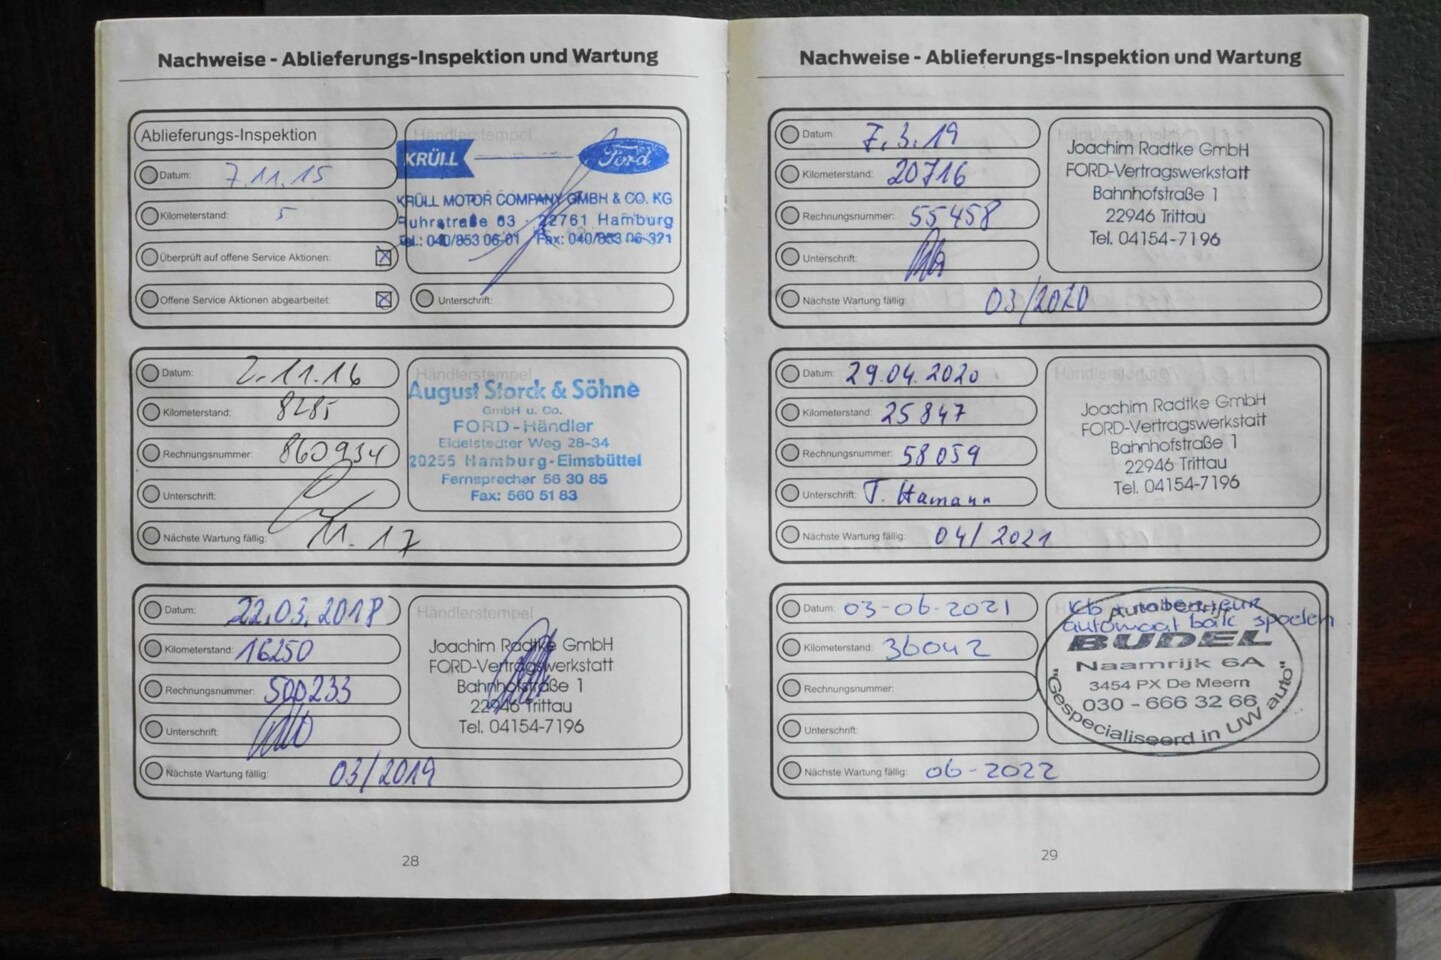 Nachweise - Ablieferungs-Inspektion und Wartung
Ablieferungs-Inspektion
Händlerstempel
Datum: 7.11.15
Kilometerstand: 5
Überprüft auf offene Service Aktionen:
Offene Service Aktionen abgearbeitet:
KRÜLL Ford
KRÜLL MOTOR COMPANY GMBH & CO. KG
Ruhrstraße 63 · 22761 Hamburg
Tel.: 040/853 06-01 Fax: 040/853 06-321
Unterschrift:
Datum: 2.11.16
Kilometerstand: 8285
Rechnungsnummer: 860934
Unterschrift:
Nächste Wartung fällig: 11.17
Händlerstempel
August Storck & Söhne
GmbH u. Co.
FORD-Händler
Eidelstedter Weg 28-34
20255 Hamburg-Eimsbüttel
Fernsprecher 56 30 85
Fax: 560 51 83
Datum: 22.03.2018
Kilometerstand: 16250
Rechnungsnummer: 500233
Unterschrift:
Nächste Wartung fällig: 03/2019
Händlerstempel
Joachim Radtke GmbH
FORD-Vertragswerkstatt
Bahnhofstraße 1
22946 Trittau
Tel. 04154-7196
28
Nachweise - Ablieferungs-Inspektion und Wartung
Datum: 7.3.19
Kilometerstand: 20716
Rechnungsnummer: 55458
Unterschrift:
Nächste Wartung fällig: 03/2020
Händlerstempel
Joachim Radtke GmbH
FORD-Vertragswerkstatt
Bahnhofstraße 1
22946 Trittau
Tel. 04154-7196
Datum: 29.04.2020
Kilometerstand: 25847
Rechnungsnummer: 58059
Unterschrift: T. Hamann
Nächste Wartung fällig: 04/2021
Händlerstempel
Joachim Radtke GmbH
FORD-Vertragswerkstatt
Bahnhofstraße 1
22946 Trittau
Tel. 04154-7196
Datum: 03-06-2021
Kilometerstand: 36042
Rechnungsnummer:
Unterschrift:
Nächste Wartung fällig: 06-2022
Autobedrijf
automaat bak spoelen
BUDEL
Naamrijk 6A
3454 PX De Meern
030 - 666 32 66
"Gespecialiseerd in UW auto"
29